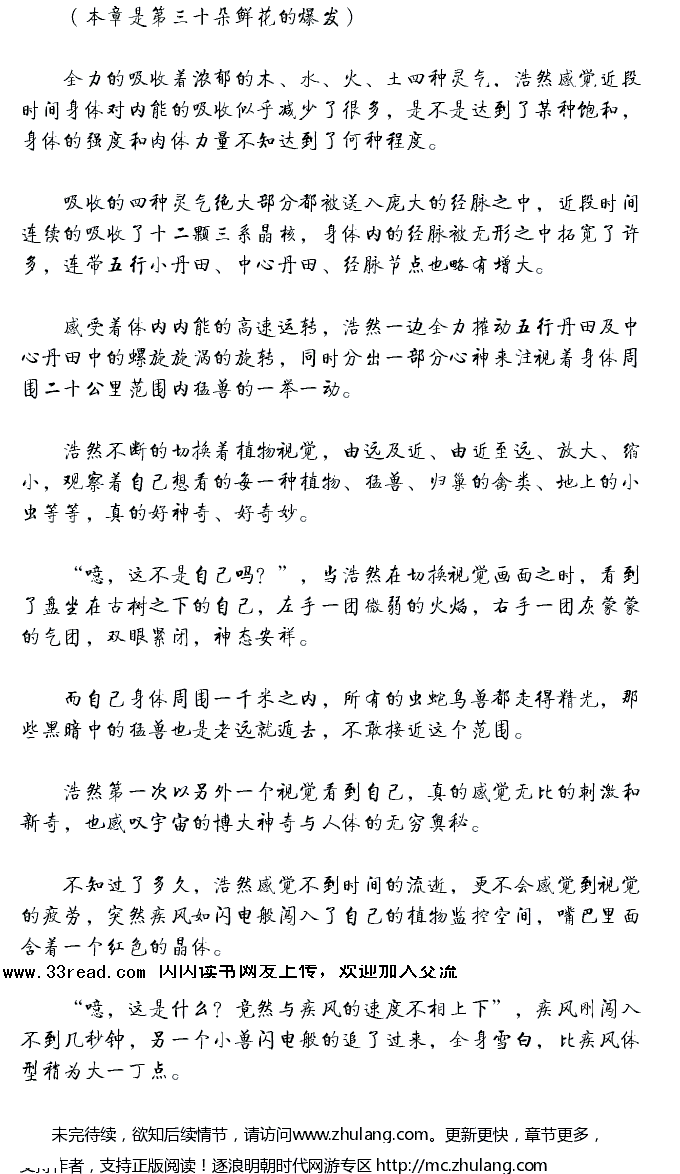 （本章是第三十朵鲜花的爆发）
全力的吸收着浓郁的木、水、火、土四种灵气，浩然感觉近段
时间身体对内能的吸收似乎减少了很多，是不是达到了某种饱和，
身体的强度和肉体力量不知达到了何种程度。
吸收的四种灵气绝大部分都被送入庞大的经脉之中，近段时间
连续的吸收了十二颗三系晶核，身体内的经脉被无形之中拓宽了许
多，连带五行小丹田、中心丹田、经脉节点也略有增大。
感受着体内内能的高速运转，浩然一边全力推动五行丹田及中
心丹田中的螺旋旋涡的旋转，同时分出一部分心神来注视着身体周
围二十公里范围内猛兽的一举一动。
浩然不断的切换着植物视觉，由远及近、由近至远、放大、缩
小，观察着自己想看的每一种植物、猛兽、归巢的禽类、地上的小
虫等等，真的好神奇、好奇妙。
“噫，这不是自己吗？”，当浩然在切换视觉画面之时，看到
了盘坐在古树之下的自己，左手一团微弱的火焰，右手一团灰蒙蒙
的气团，双眼紧闭，神态安祥。
而自己身体周围一千米之内，所有的虫蛇鸟兽都走得精光，那
些黑暗中的猛兽也是老远就遁去，不敢接近这个范围。
浩然第一次以另外一个视觉看到自己，真的感觉无比的刺激和
新奇，也感叹宇宙的博大神奇与人体的无穷奥秘。
不知过了多久，浩然感觉不到时间的流逝，更不会感觉到视觉
的疲劳，突然疾风如闪电般闯入了自己的植物监控空间，嘴巴里面
含着一个红色的晶体。
www.33read.com 闪闪读书网友上传，欢迎加入交流
“噫，这是什么？竟然与疾风的速度不相上下”，疾风刚闯入
不到几秒钟，另一个小兽闪电般的追了过来，全身雪白，比疾风体
型稍为大一丁点。
未完待续，欲知后续情节，请访问www.zhulang.com。更新更快，章节更多，
支持作者，支持正版阅读！逐浪明朝时代网游专区 http://mc.zhulang.com